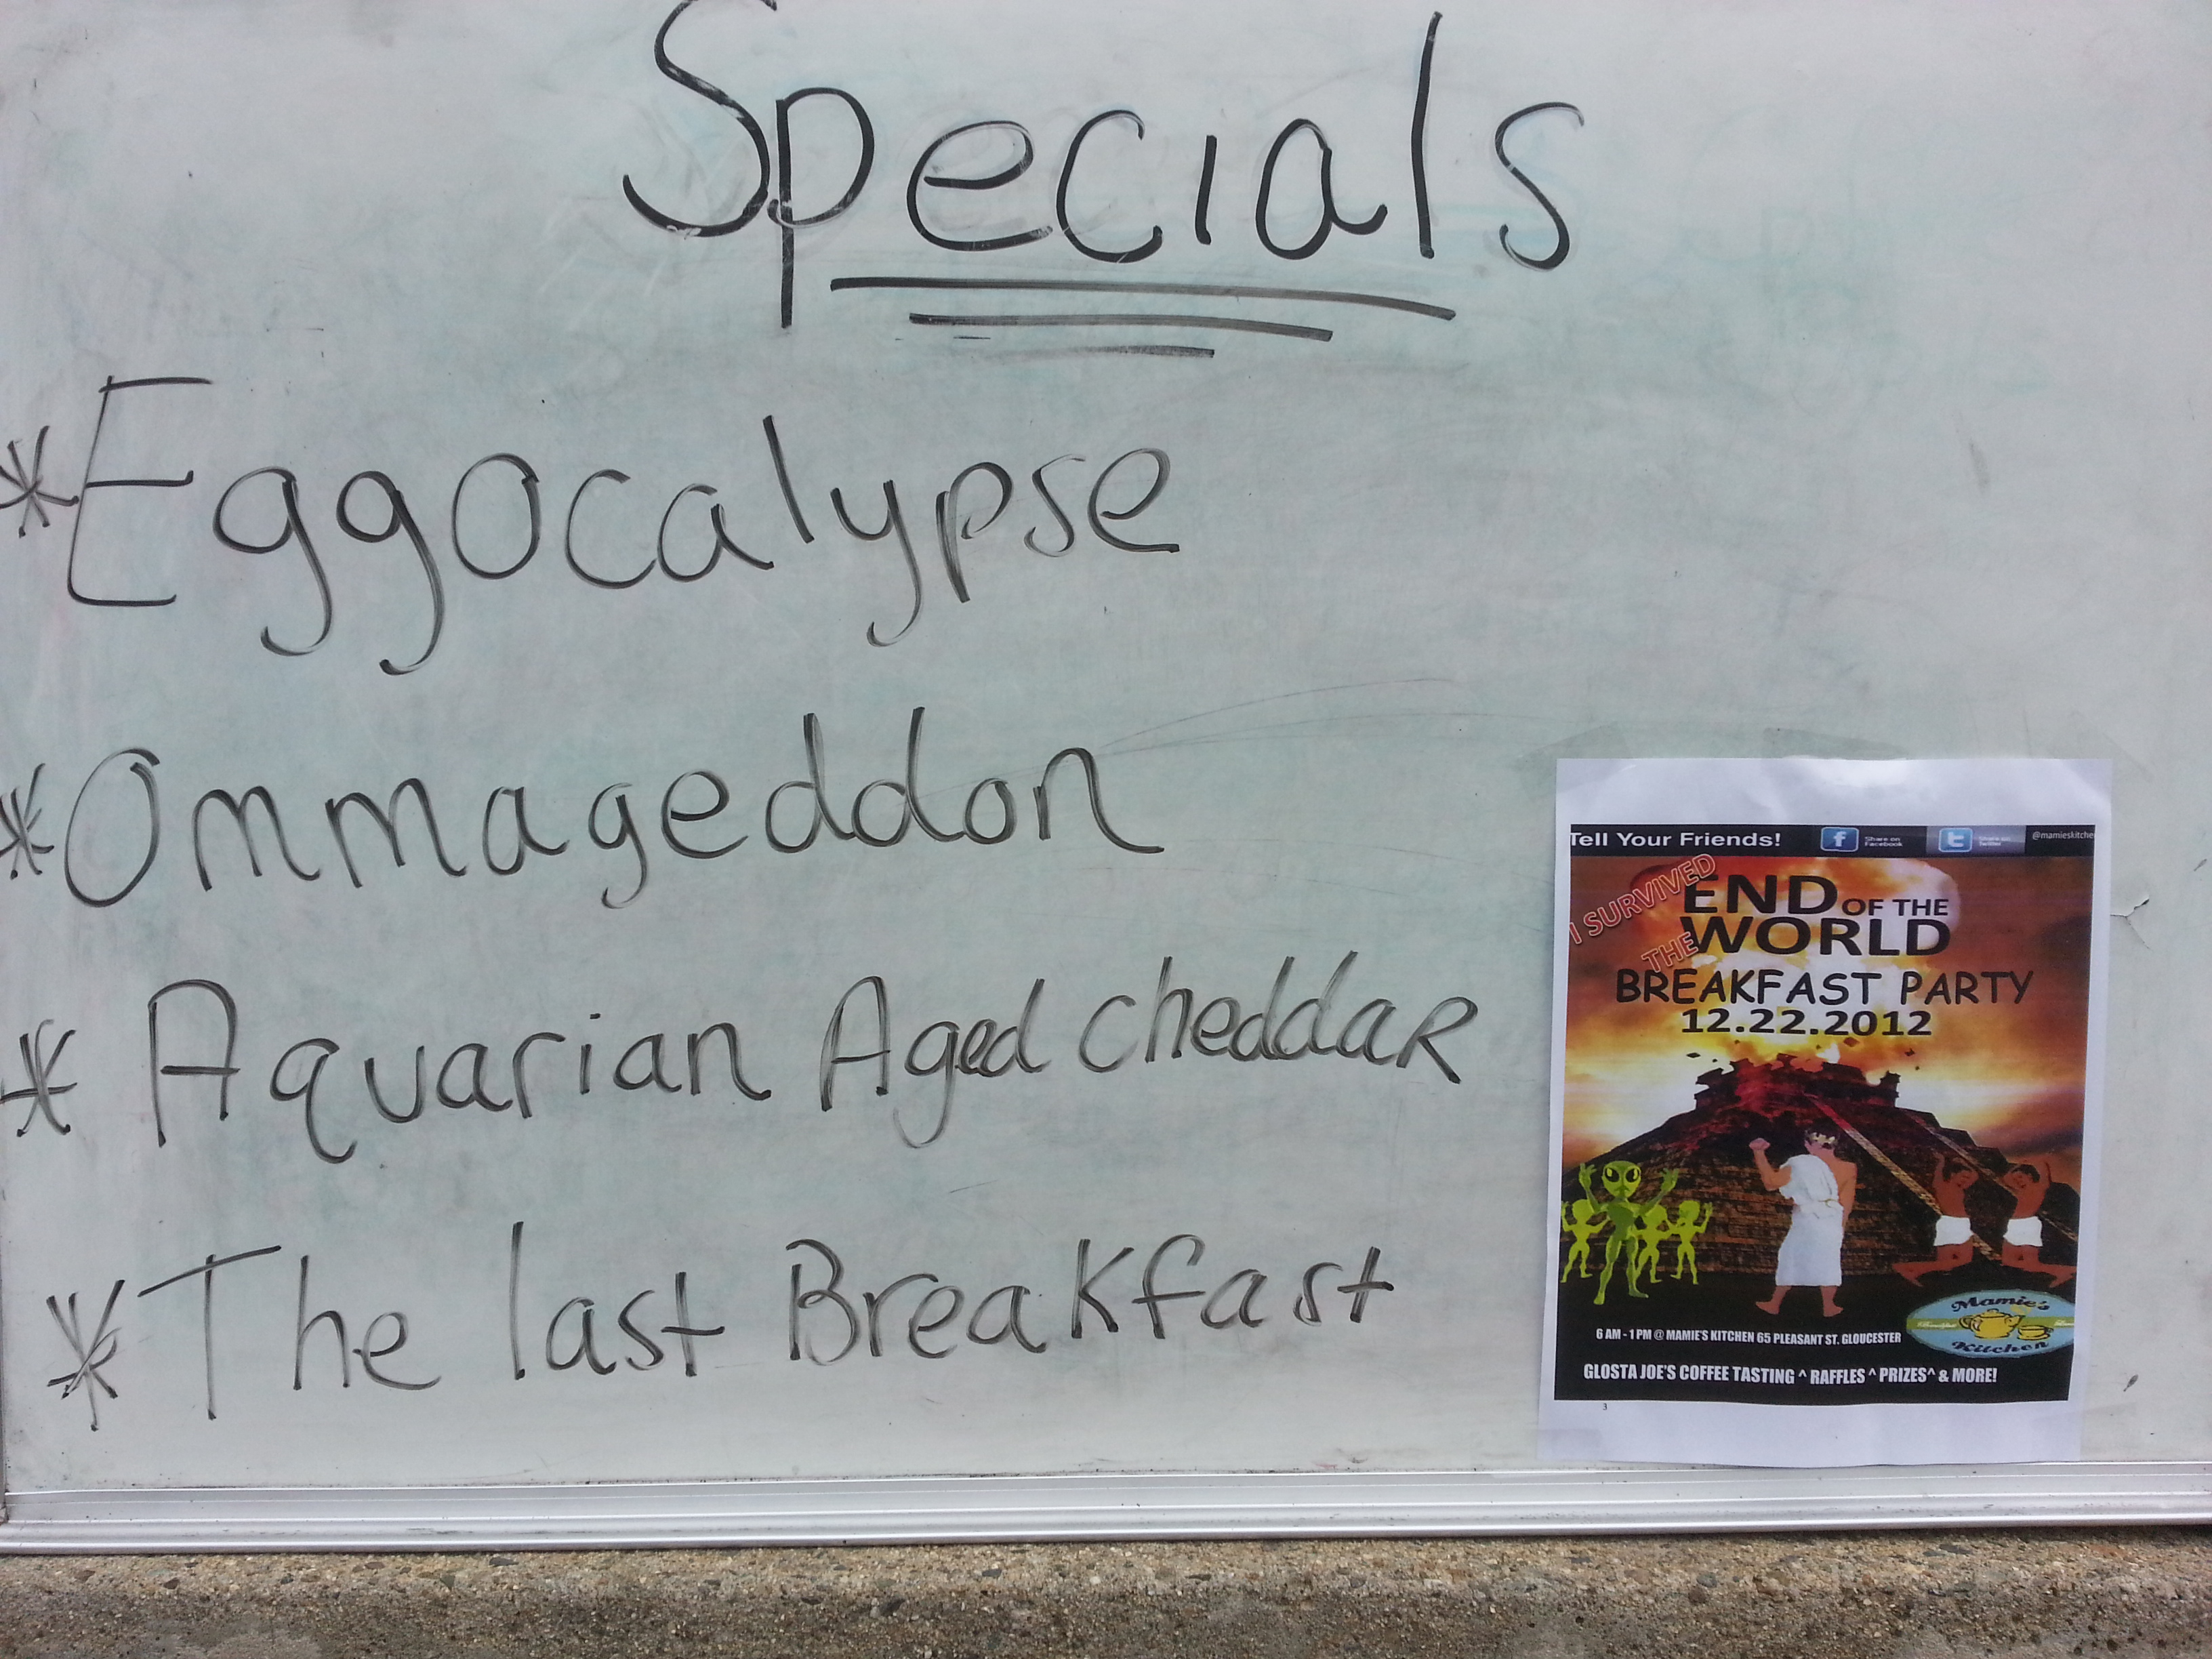 Specials
*Eggocalypse
*Ommageddon
* Aquarian Aged cheddar
*The last Breakfast
Tell Your Friends!
Share on Facebook
Share on Twitter
@mamieskitche
I SURVIVED
THE
END OF THE
WORLD
BREAKFAST PARTY
12.22.2012
Mamie's
Kitchen
6 AM - 1 PM @ MAMIE'S KITCHEN 65 PLEASANT ST. GLOUCESTER
GLOSTA JOE'S COFFEE TASTING ^ RAFFLES ^ PRIZES^ & MORE!
3